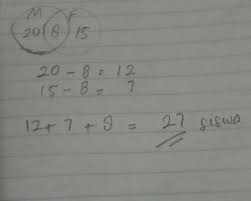 M F
20 8 15
20 - 8 = 12
15 - 8 = 7
12 + 7 + 8 = 27 siswa